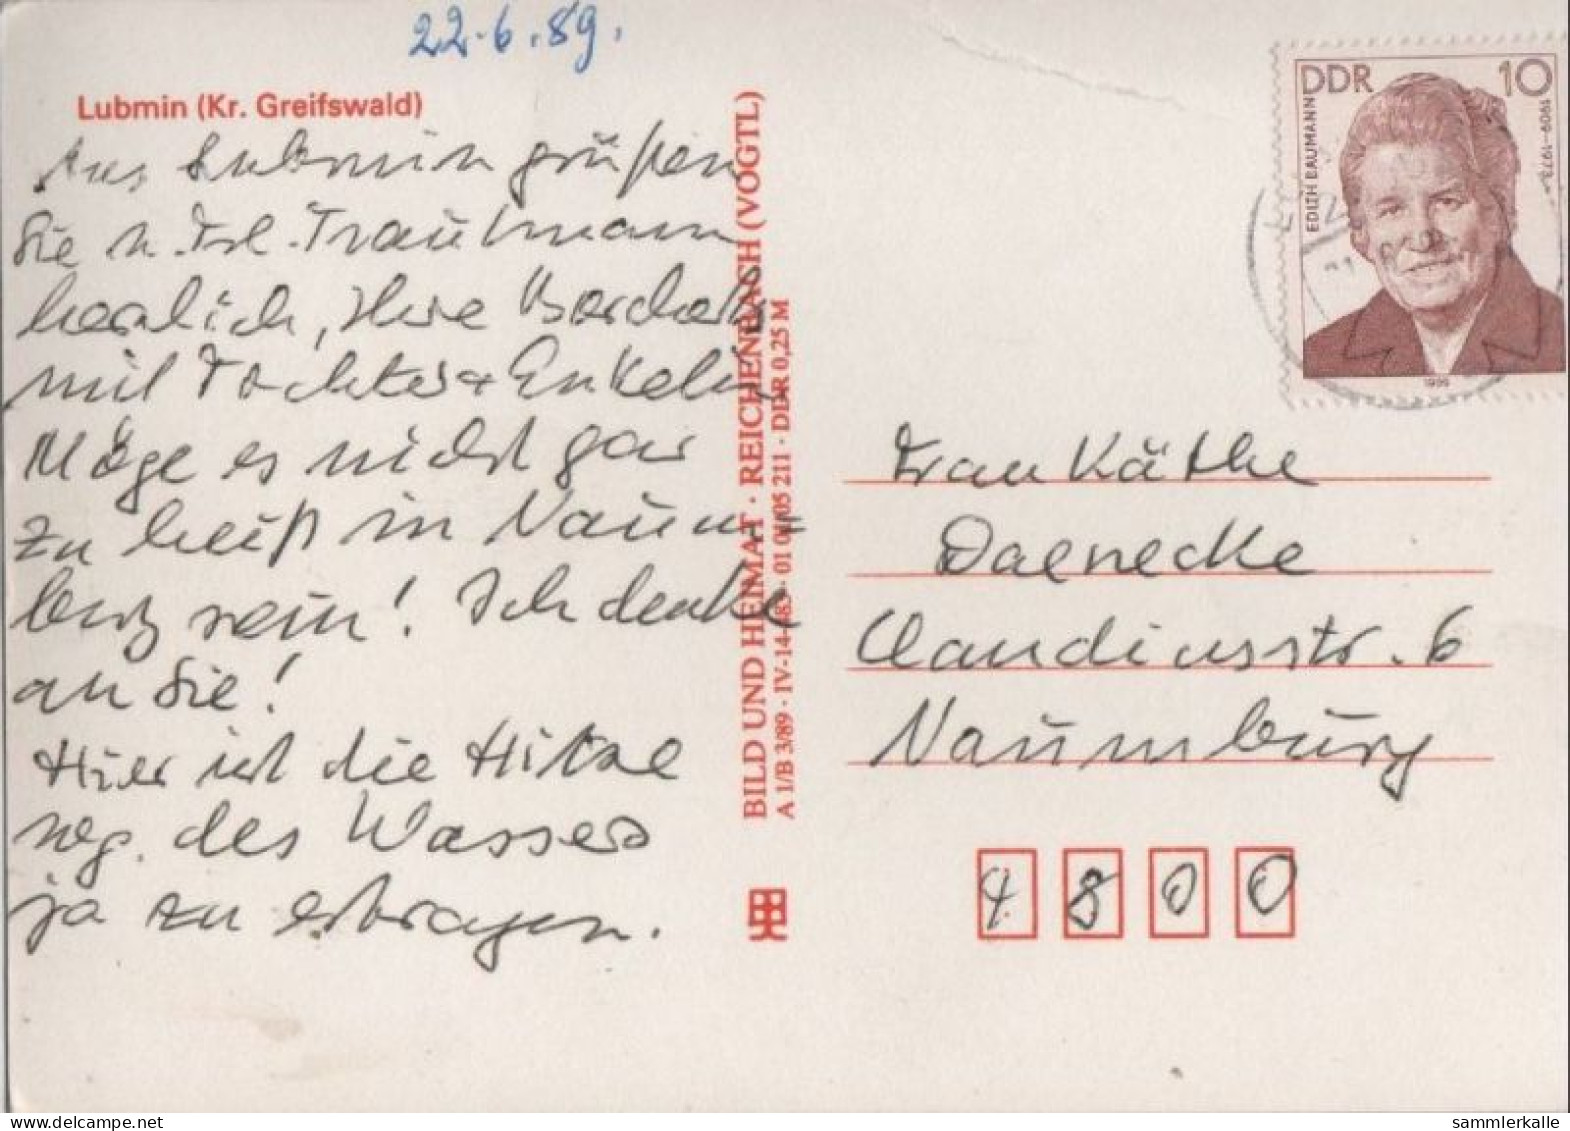 22.6.89.
Lubmin (Kr. Greifswald)
Aus Lubmin grüßen
Sie u. Frl. Trautmann
herzlich, Ihre
mit Tochter + Enkelin
Möge es nicht gar
zu heiß in Naum=
burg sein! Ich denke
an Sie!
Hier ist die Hitze
weg. des Wassers
ja zu ertragen.
BILD UND HEIMAT · REICHENBACH (VOGTL)
A 1/B 3/89 · IV-14-483 · 01 01 05 211 · DDR 0,25 M
DDR 10
EDITH BAUMANN
1909-1973
Frau Käthe
Daenecke
Claudiusstr. 6
Naumburg
4800
sammlerkalle